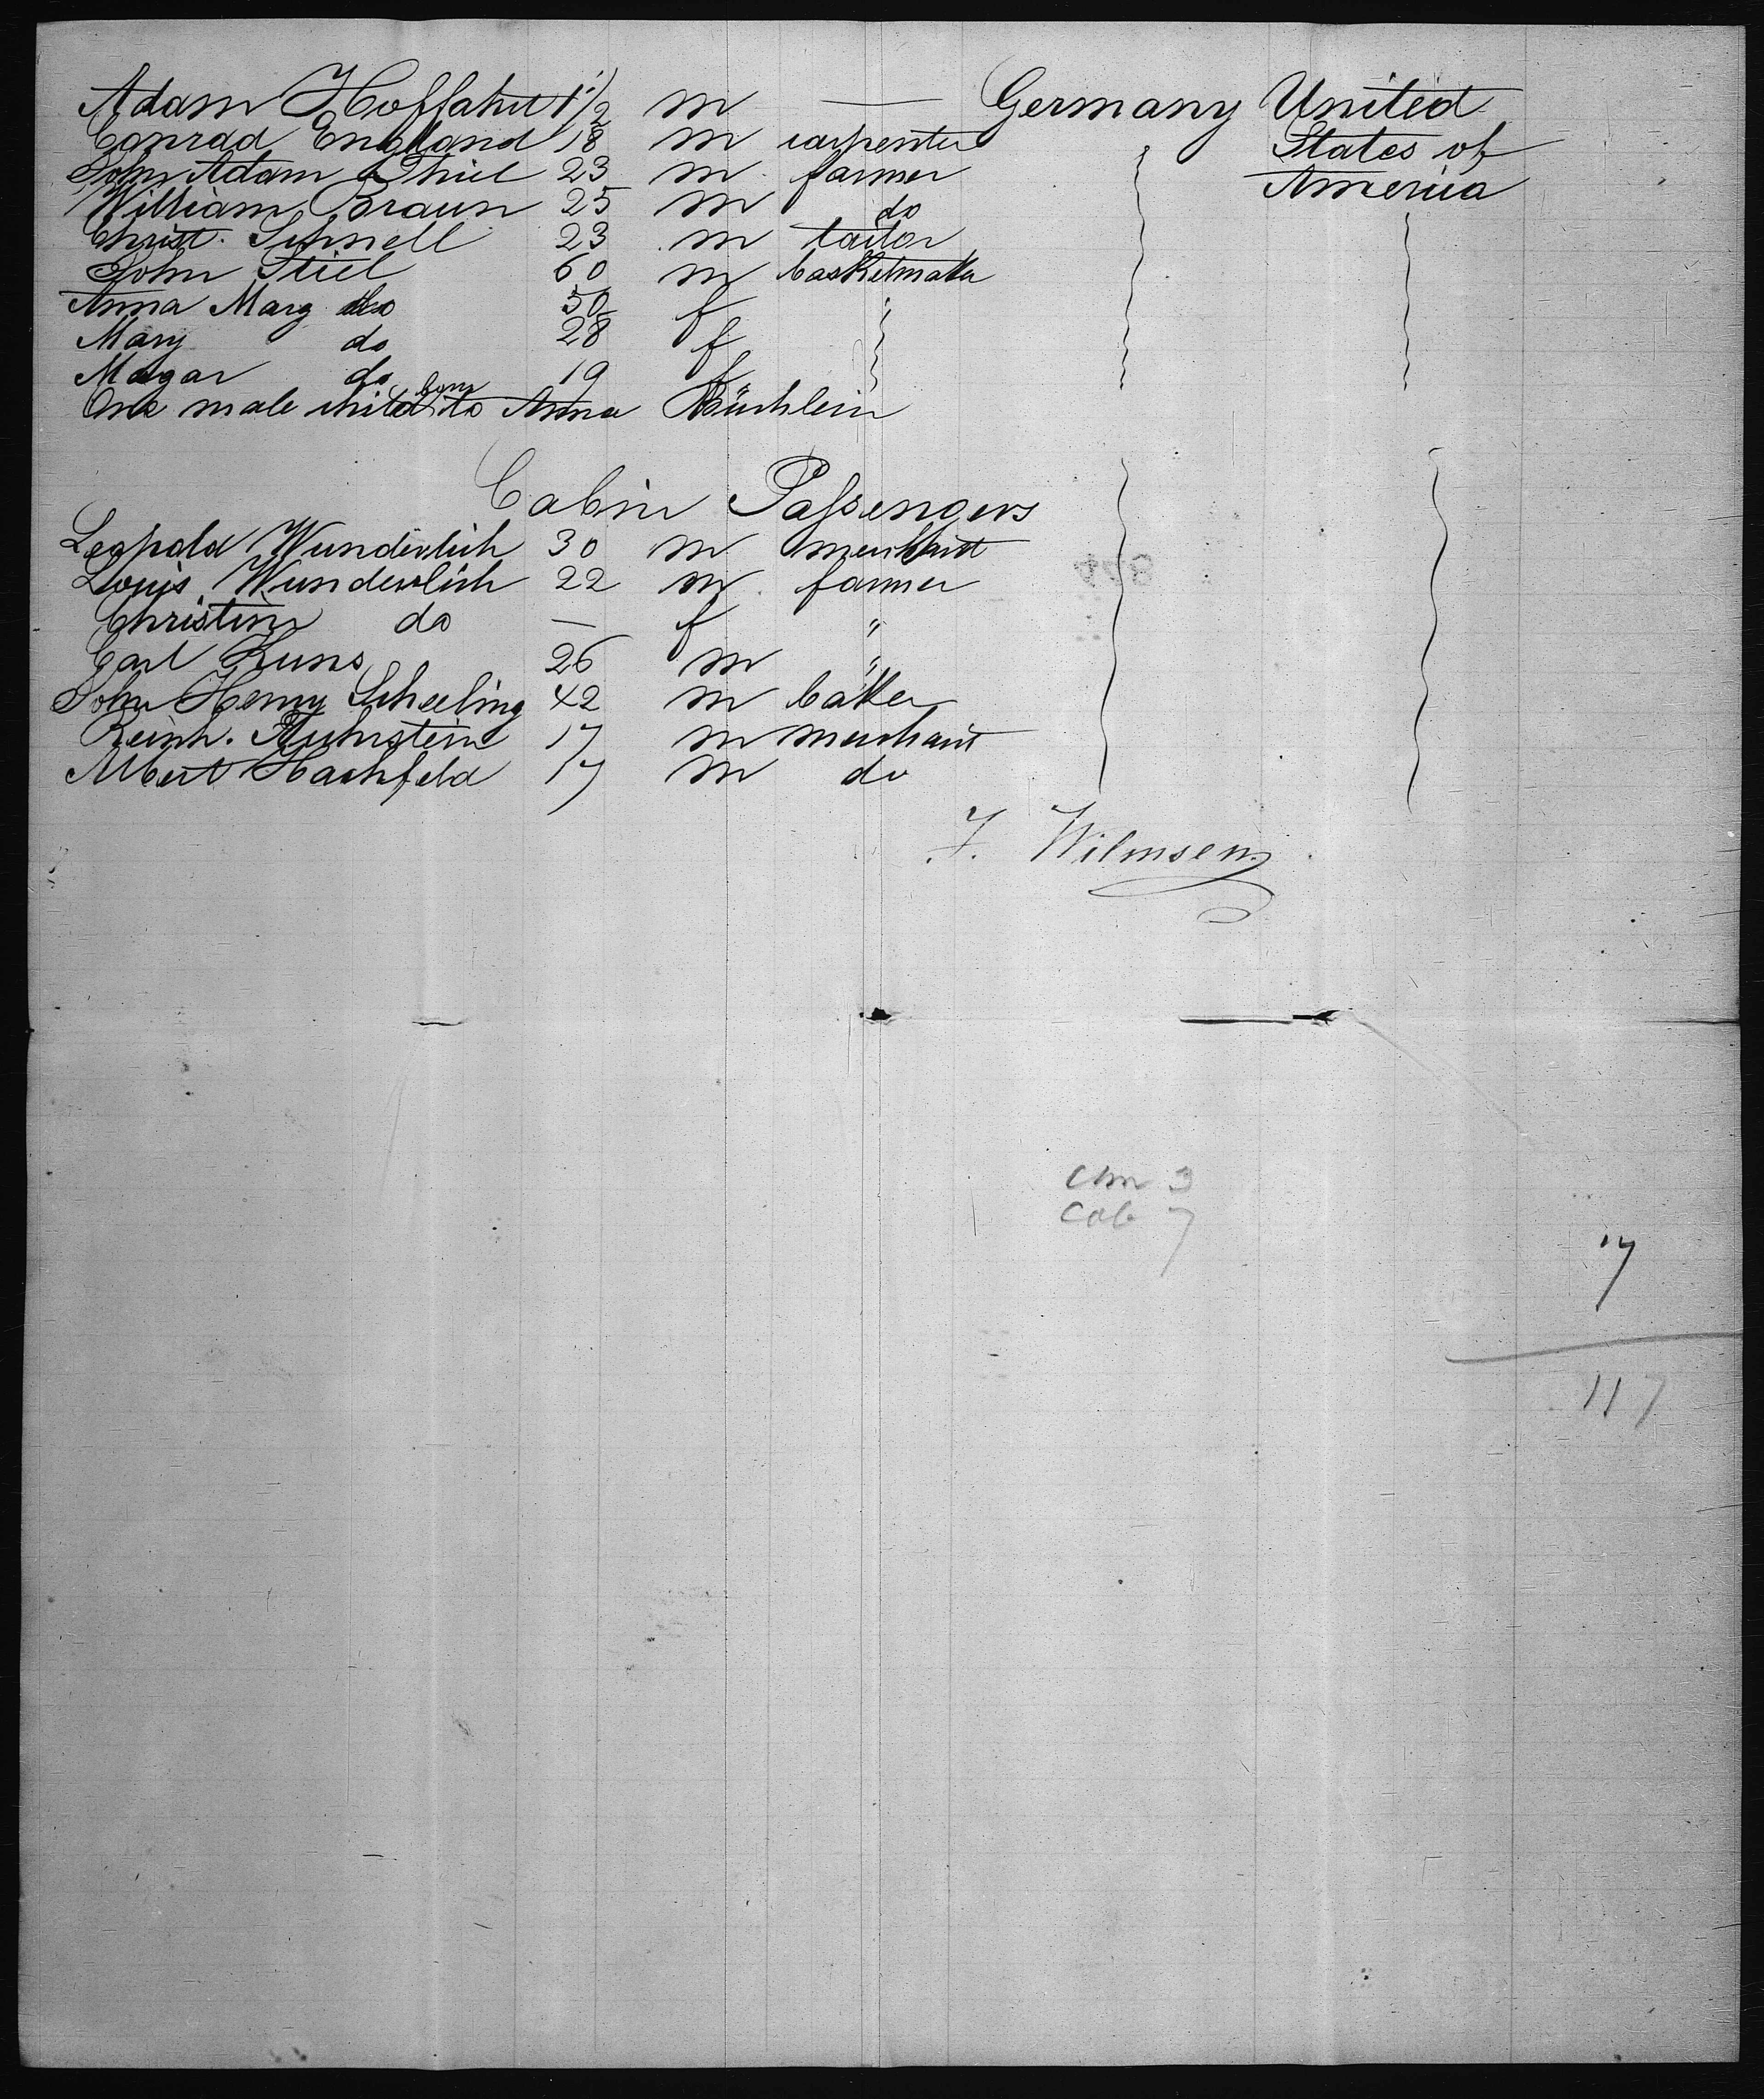 Adam Hoffahrt 1 1/2 m — Germany United
Conrad England 18 m carpenter States of
John Adam Thiel 23 m farmer America
William Braun 25 m do
Christ. Schnell 23 m tailor
John Stiel 60 m basketmaker
Anna Marg do 50 f "
Mary do 28 f
Magar do 19 f
One male child born to Anna Büchlein
Cabin Passengers
Leopold Wunderlich 30 m merchant
Louis Wunderlich 22 m farmer
Christine do — f "
Carl Kuns 26 m "
John Henry Scheeling 42 m baker
Reinh. Ruhstein 17 m merchant
Albert Hachfeld 17 m do
F. Wilmsen
Chn 3
Cab 7
17
117